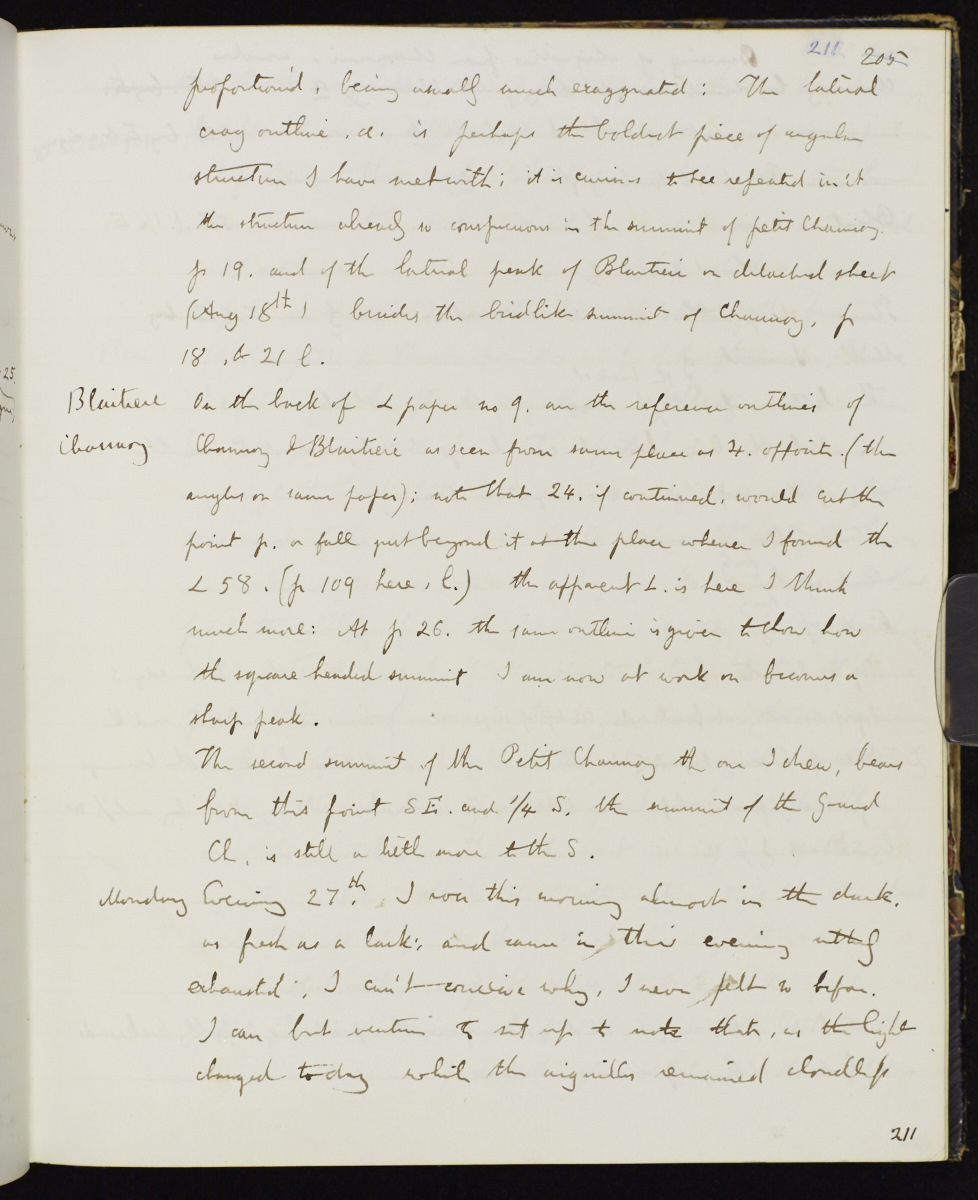 211 205
proportion'd, being usually much exaggerated: The lateral
crag outline, a. is perhaps the boldest piece of angular
structure I have met with; it is curious to see repeated in it
the structure already so conspicuous in the summit of petit Charmoz.
p 19. and of the lateral peak of Blaitiere on detached sheet
(Aug 18th) besides the birdlike summit of Charmoz, p
18, & 21 l.
Blaitiere
Charmoz
On the back of L paper no 9. are the reference outlines of
Charmoz & Blaitiere as seen from same place as 4. opposite. (the
angles on same paper); note that 24. if continued, would cut the
point p. or fall just beyond it at the place where I found the
∠ 58. (p 109 here, l.) the apparent ∠. is here I think
much more: At p 26. the same outline is given to show how
the square headed summit I am now at work on becomes a
sharp peak.
The second summit of the Petit Charmoz the one I drew, bears
from this point SE. and 1/4 S. the summit of the Grand
Ch, is still a little more to the S.
Monday Evening 27th. I rose this morning almost in the dark,
as fresh as a lark; and came in this evening utterly
exhausted; I can't conceive why, I never felt so before.
I can but venture to sit up to note that, as the light
changed to day while the aiguilles remained cloudless
211